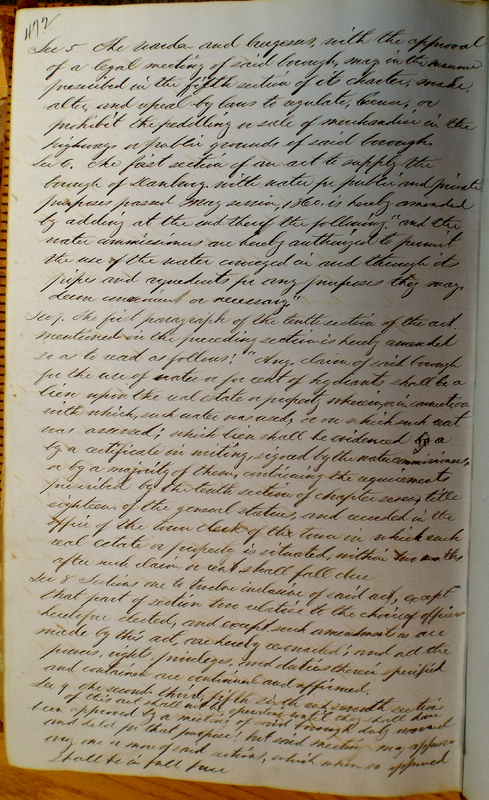 472
Sec 5 The warden and burgesses, with the approval
of a legal meeting of said borough, may in the manner
prescribed in the fifth section of its charter, make,
alter, and repeal by laws to regulate, license, or
prohibit the peddling or sale of merchandise in the
highways or public grounds of said borough.
Sec 6. The first section of an act to supply the
borough of Danbury with water for public and private
purposes passed May session, 1860, is hereby amended
by adding at the end thereof the following, "and the
water commissioners are hereby authorized to permit
the use of the water conveyed in and through its
pipes and aqueducts for any purposes they may
deem convenient or necessary"
Sec 7. The first paragraph of the tenth section of the act
mentioned in the preceding section is hereby amended
so as to read as follows: "Any claim of said borough
for the use of water or for rent of hydrants shall be a
lien upon the real estate or property wherein, or in connection
with which, such water was used, or on which such rent
was assessed; which lien shall be evidenced by a
by a certificate in writing, signed by the water commissioners,
or by a majority of them, containing the requirements
prescribed by the tenth section of chapter seven, title
eighteen of the general statutes, and recorded in the
office of the town clerk of the town in which such
real estate or property is situated, within two months
after such claim or rent shall fall due
Sec 8 Sections one to twelve inclusive of said act, except
that part of section two relative to the choice of officers
heretofore elected, and except such amendments as are
made by this act, are hereby reenacted; and all the
powers, rights, privileges, and duties therein specified
and contained are continued and affirmed.
Sec 9 The second third, fifth sixth and seventh section
of this act shall not be operative until they shall have
been approved by a meeting of said borough duly warned
and held for that purpose; but said meeting may approve
any one or more of said section, which when so approved
shall be in full force